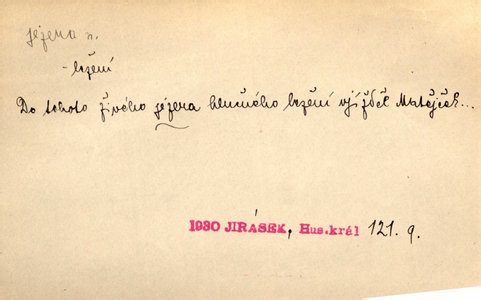 jejena n.
- ležení
Do tohoto živého jejena hlučného ležení vjížděl Matějček...
1930 JIRÁSEK, Hus.král 121. 9.